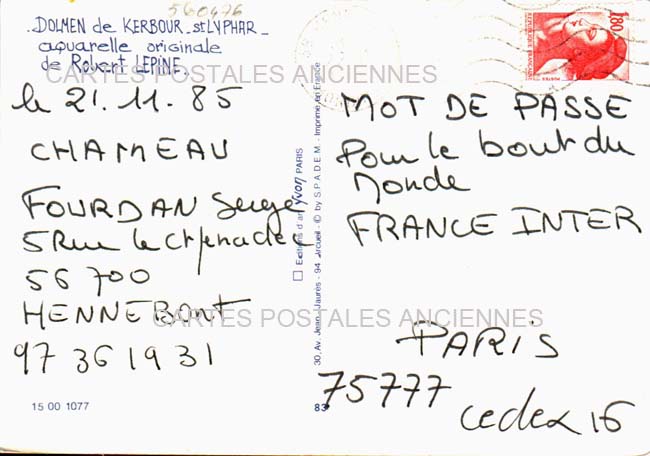 560476
DOLMEN de KERBOUR _ st LYPHAR _
aquarelle originale
de Robert LEPINE _
CARTES POSTALES ANCIENNES
le 21.11.85
CHAMEAU
FOURDAN Serge
5 Rue le
56 700
HENNEBONT
97 36 19 31
15 00 1077
Editions d'art yvon PARIS
30, Av. Jean-Jaurès - 94 Arcueil - © by S.P.A.D.E.M. - Imprimé en France
83
1,80
MOT DE PASSE
Pour le bout du
Monde
FRANCE INTER
CARTES POSTALES ANCIENNES
PARIS
75777
cedex 16